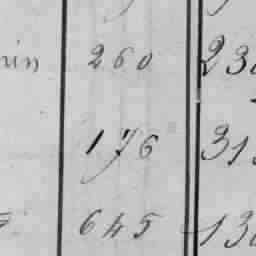 260 23
176 31
645 13